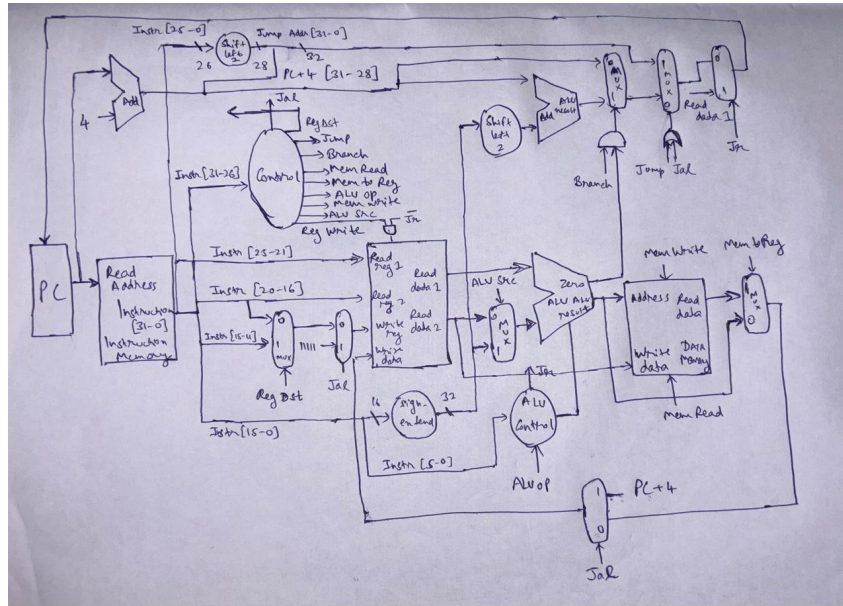 Instr [25-0]
Shift left 2
Jump Addr [31-0]
26
28
32
PC+4 [31-28]
Add
4
Jal
RegDst
Jump
Branch
Mem Read
Mem to Reg
ALU OP
Mem Write
ALU Src
Reg Write
Control
Instr [31-26]
Jr
Shift left 2
Add
ALU result
0
MUX
1
1
MUX
0
0
1
Read data 1
Branch
Jump
Jal
Jr
PC
Read Address
Instruction [31-0]
Instruction Memory
Instr [25-21]
Instr [20-16]
Instr [15-11]
0
1
MUX
11111
0
1
Reg Dst
Jal
Read reg 1
Read reg 2
Write reg
Write data
Read data 1
Read data 2
ALU Src
0
MUX
1
Zero
ALU
ALU result
MemWrite
Address
Read data
Write data
DATA Memory
Mem Read
MemtoReg
1
MUX
0
Istr [15-0]
16
Sign-extend
32
Instr [5-0]
Jr
ALU Control
ALU OP
1
0
PC+4
Jal